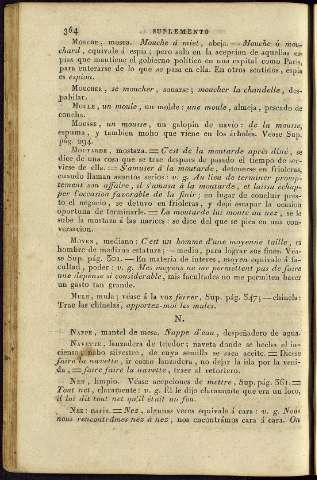 364
SUPLEMENTO
MOUCHE, mosca. Mouche á miel, abeja. — Mouche ó mou-
chard, equivale á espia; pero solo en la acepcion de aquellas es-
pias que mantiene el gobierno político en una capital como Paris,
para enterarse de lo que se pasa en ella. En otros sentidos, espia
es espion.
MOUCHER, se moucher, sonarse; moucher la chandelle, des-
pabilar.
MOULE, un moule, un molde: une moule, almeja, pescado de
concha.
MOUSSE, un mousse, un galopin de navio: de la mousse,
espuma, y tambien moho que viene en los árboles. Véase Sup.
pág. 294.
MOUTARDE, mostaza. = C'est de la moutarde après diné, se
dice de una cosa que se trae despues de pasado el tiempo de ser-
virse de ella. = S'amuser á la moutarde, detenerse en friolera,
cuando llaman asuntos serios: v. g. Au lieu de terminer promp-
tement son affaire, il s'amusa á la moutarde, et laissa échap-
per l'occasion favorable de la finir; en lugar de concluir pres-
to el negocio, se detuvo en frioleras, y dejó escapar la ocasion
oportuna de terminarle. = La moutarde lui monte au nez, se le
sube la mostaza á las narices: se dice del que se pica en una con-
versacion.
MOYEN, mediano: C'est un homme d'une moyenne taille, es
hombre de mediana estatura; — medio, para lograr sus fines. Véa-
se Sup. pág. 301. — En materia de interes, moyen equivale á fa-
cultad, poder: v. g. Mes moyens ne me permettent pas de faire
une dépense si considerable, mis facultades no me permiten hacer
un gasto tan grande.
MULE, mula; véase á la voz ferrer, Sup. pág. 347; — chinela:
Trae las chinelas, apportez-moi les mules.
N.
NAPPE, mantel de mesa. Nappe d'eau, despeñadero de agua.
NAVETTE, lanzadera de tejedor; naveta donde se hecha el in-
cienso; nabo silvestre, de cuya semilla se saca aceite. = Dicese
faire la navette, ir como lanzadera, no dejar la ida por la veni-
da, = faire faire la navette, traer al retortero.
NET, limpio. Véase acepciones de mettre, Sup. pág. 361. =
Tout net, claramente: v. g. El le dijo claramente que era un loco,
il lui dit tout net qu'il était un fou.
NEZ: nariz. = Nez, algunas veces equivale á cara: v. g. Nous
nous rencontrâmes nez á nez, nos encontrámos cara á cara. On